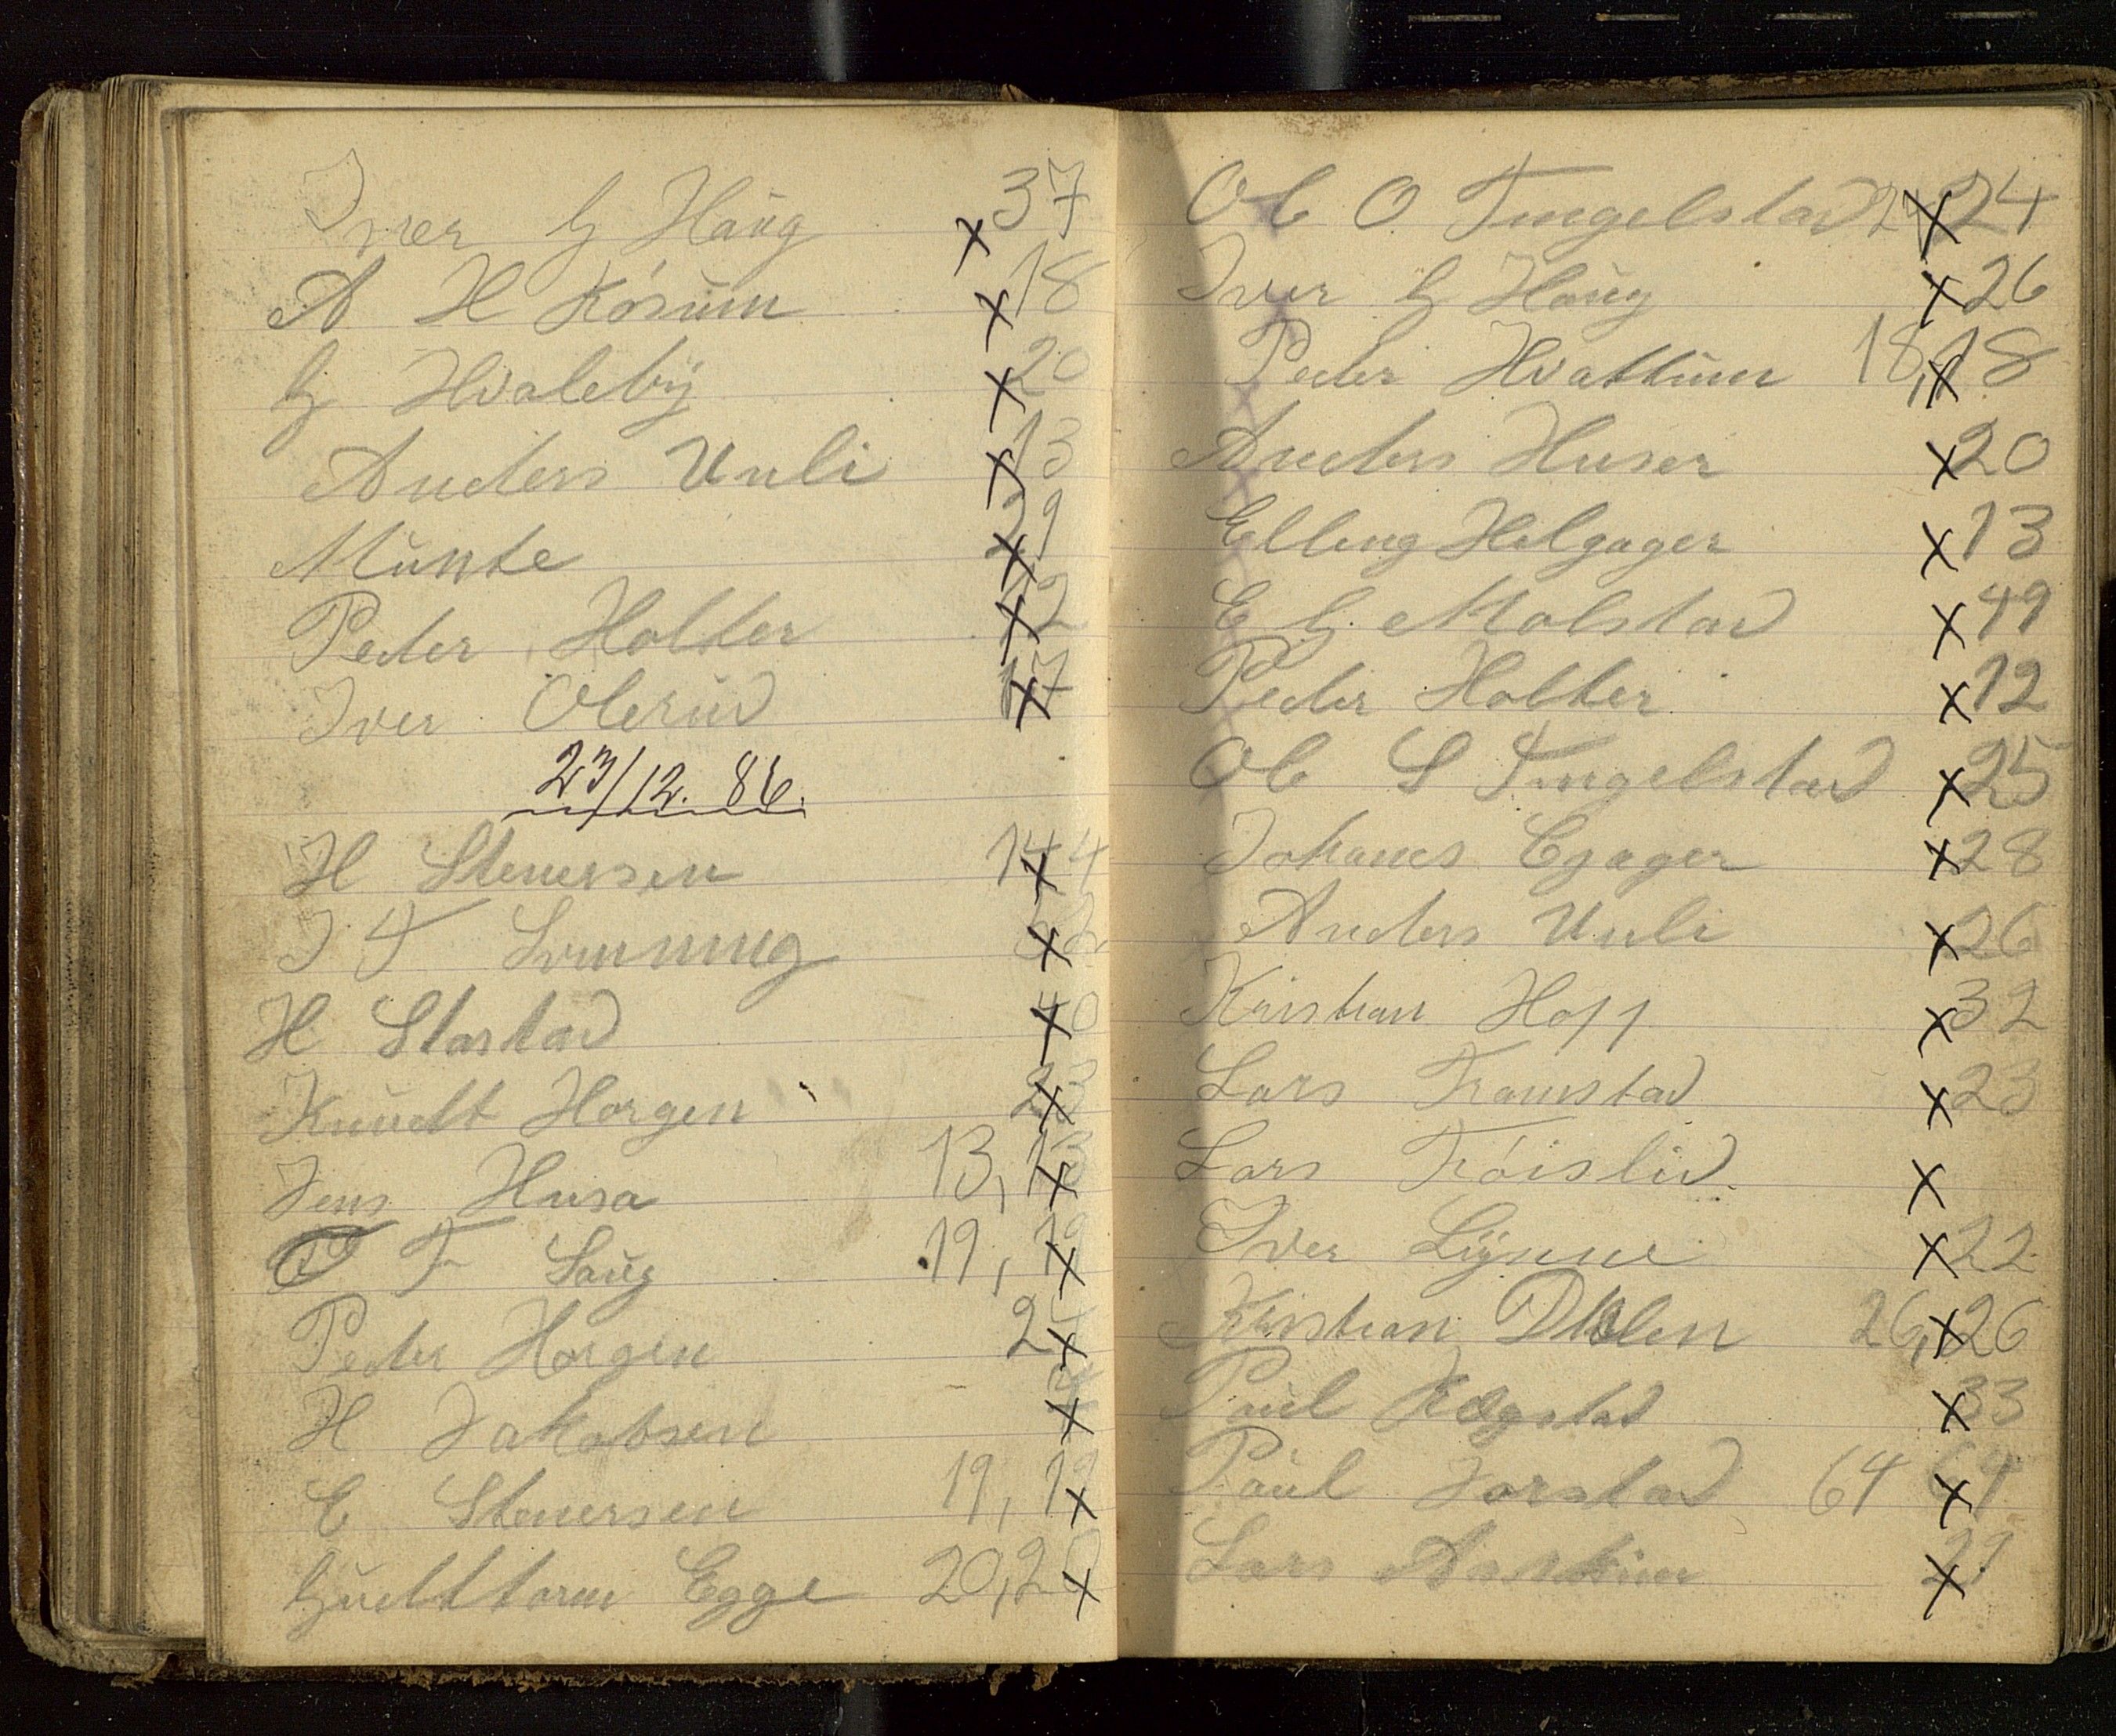 Iver G Haug x 37
A H Kósum x 18
G Hvaleby x 20
Anders Unli x 13
Munte x 29
Peder Holter x 12
Iver Olerud x 17
23/12. 86.
H Stenersen 144 x
I T Lynning x
H Stastad x 40
Knudt Horgen x 23
Jens Husa 13, x 13
P T Haug 19, x 19
Peder Horgen 2 x
H Jakobsen x
E Stenersen 19, 19 x
Gudttorm Egge 20, 20 x
Ole O. Tingelstad 24 x 24
Iver G Haug x 26
Peder Hvattum 18, x 18
Anders Huser x 20
Elling Helgager x 13
E G. Molstad x 49
Peder Holter x 12
Ole S Tingelstad x 25
Johanes Egager x 28
Anders Unli x 26
Kristian Hopp x 32
Lars Framstad x 23
Lars Tróislid. x
Iver Lynne x 22
Kristian Dolen 26, x 26
Paul Hægstad x 33
Paul Jorstad 64 x 64
Lars x